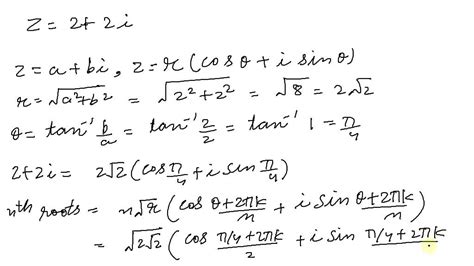 z = 2+2i
z = a+bi, z = r(cosθ + i sinθ)
r = √(a²+b²) = √(2²+2²) = √8 = 2√2
θ = tan⁻¹ b/a = tan⁻¹ 2/2 = tan⁻¹ 1 = π/4
2+2i = 2√2(cos π/4 + i sin π/4)
nth roots = n√r (cos (θ+2πk)/n + i sin (θ+2πk)/n)
= √(2√2) (cos (π/4+2πk)/2 + i sin (π/4+2πk